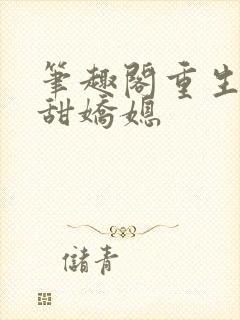 筆趣閣重生
甜嬌媳
儲青